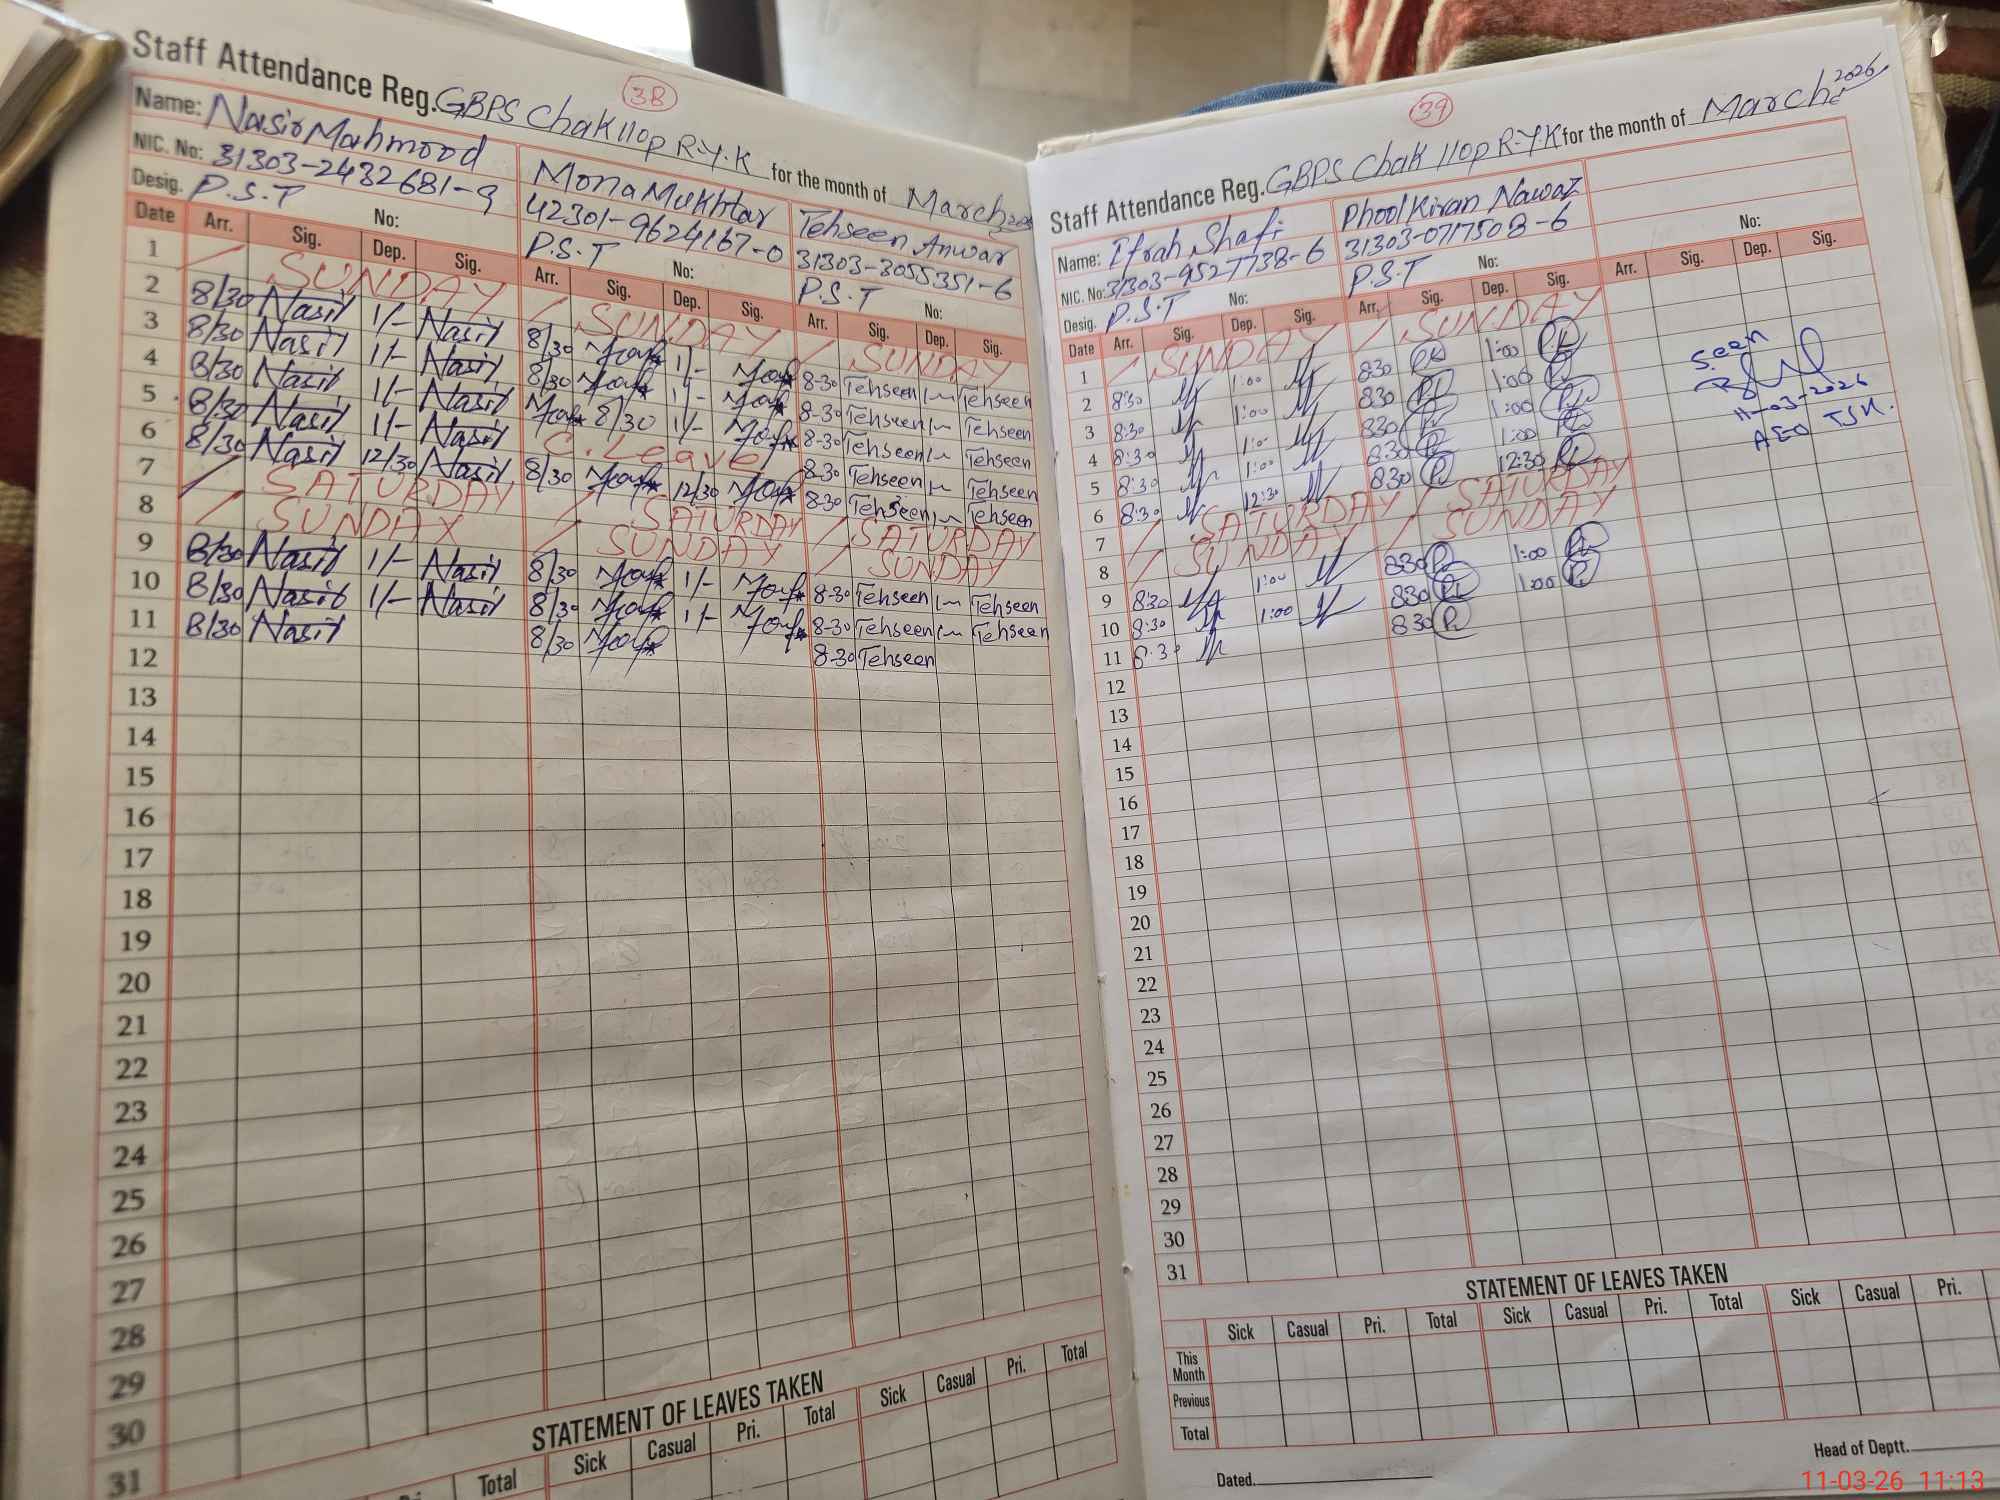 Staff Attendance Reg. GBPS Chak 110p R.Y.K for the month of March 2026
38
Name: Nasir Mahmood
NIC. No: 31303-2432681-9
Desig. P.S.T No:
Mona Mukhtar
42301-9624167-0
P.S.T No:
Tehseen Anwar
31303-3055351-6
P.S.T No:
Date Arr. Sig. Dep. Sig. Arr. Sig. Dep. Sig. Arr. Sig. Dep. Sig.
1 SUNDAY SUNDAY SUNDAY
2 8/30 Nasir 1/- Nasir 8/30 1/- 8-30 Tehseen Tehseen
3 8/30 Nasir 1/- Nasir 8/30 1/- 8-30 Tehseen Tehseen
4 8/30 Nasir 1/- Nasir 8/30 1/- 8-30 Tehseen Tehseen
5 8/30 Nasir 1/- Nasir C.Leave 8-30 Tehseen Tehseen
6 8/30 Nasir 12/30 Nasir 8/30 12/30 8-30 Tehseen Tehseen
7 SATURDAY SATURDAY SATURDAY
8 SUNDAY SUNDAY SUNDAY
9 8/30 Nasir 1/- Nasir 8/30 1/- 8-30 Tehseen Tehseen
10 8/30 Nasir 1/- Nasir 8/30 1/- 8-30 Tehseen Tehseen
11 8/30 Nasir 8/30 8-30 Tehseen
12
13
14
15
16
17
18
19
20
21
22
23
24
25
26
27
28
29
30
31
STATEMENT OF LEAVES TAKEN
Total Sick Casual Pri. Total Sick Casual Pri. Total
39
Staff Attendance Reg. GBPS Chak 110p R.Y.K for the month of March 2026
Name: Ifrah Shafi
NIC. No: 31303-9527738-6
Desig. P.S.T No:
Phool Kiran Nawaz
31303-0717508-6
P.S.T No:
No:
Date Arr. Sig. Dep. Sig. Arr. Sig. Dep. Sig. Arr. Sig. Dep. Sig.
1 SUNDAY SUNDAY
2 8:30 1:00 830 1:00
3 8:30 1:00 830 1:00
4 8:30 1:00 830 1:00
5 8:30 1:00 8:30 1:00
6 8:30 12:30 830 12:30
7 SATURDAY SATURDAY
8 SUNDAY SUNDAY
9 8:30 1:00 830 1:00
10 8:30 1:00 830 1:00
11 8:30 830
Seen
11-03-2026
AEO TSK.
12
13
14
15
16
17
18
19
20
21
22
23
24
25
26
27
28
29
30
31
STATEMENT OF LEAVES TAKEN
Sick Casual Pri. Total Sick Casual Pri. Total Sick Casual Pri.
This Month
Previous
Total
Head of Deptt.
Dated.
11-03-26 11:13